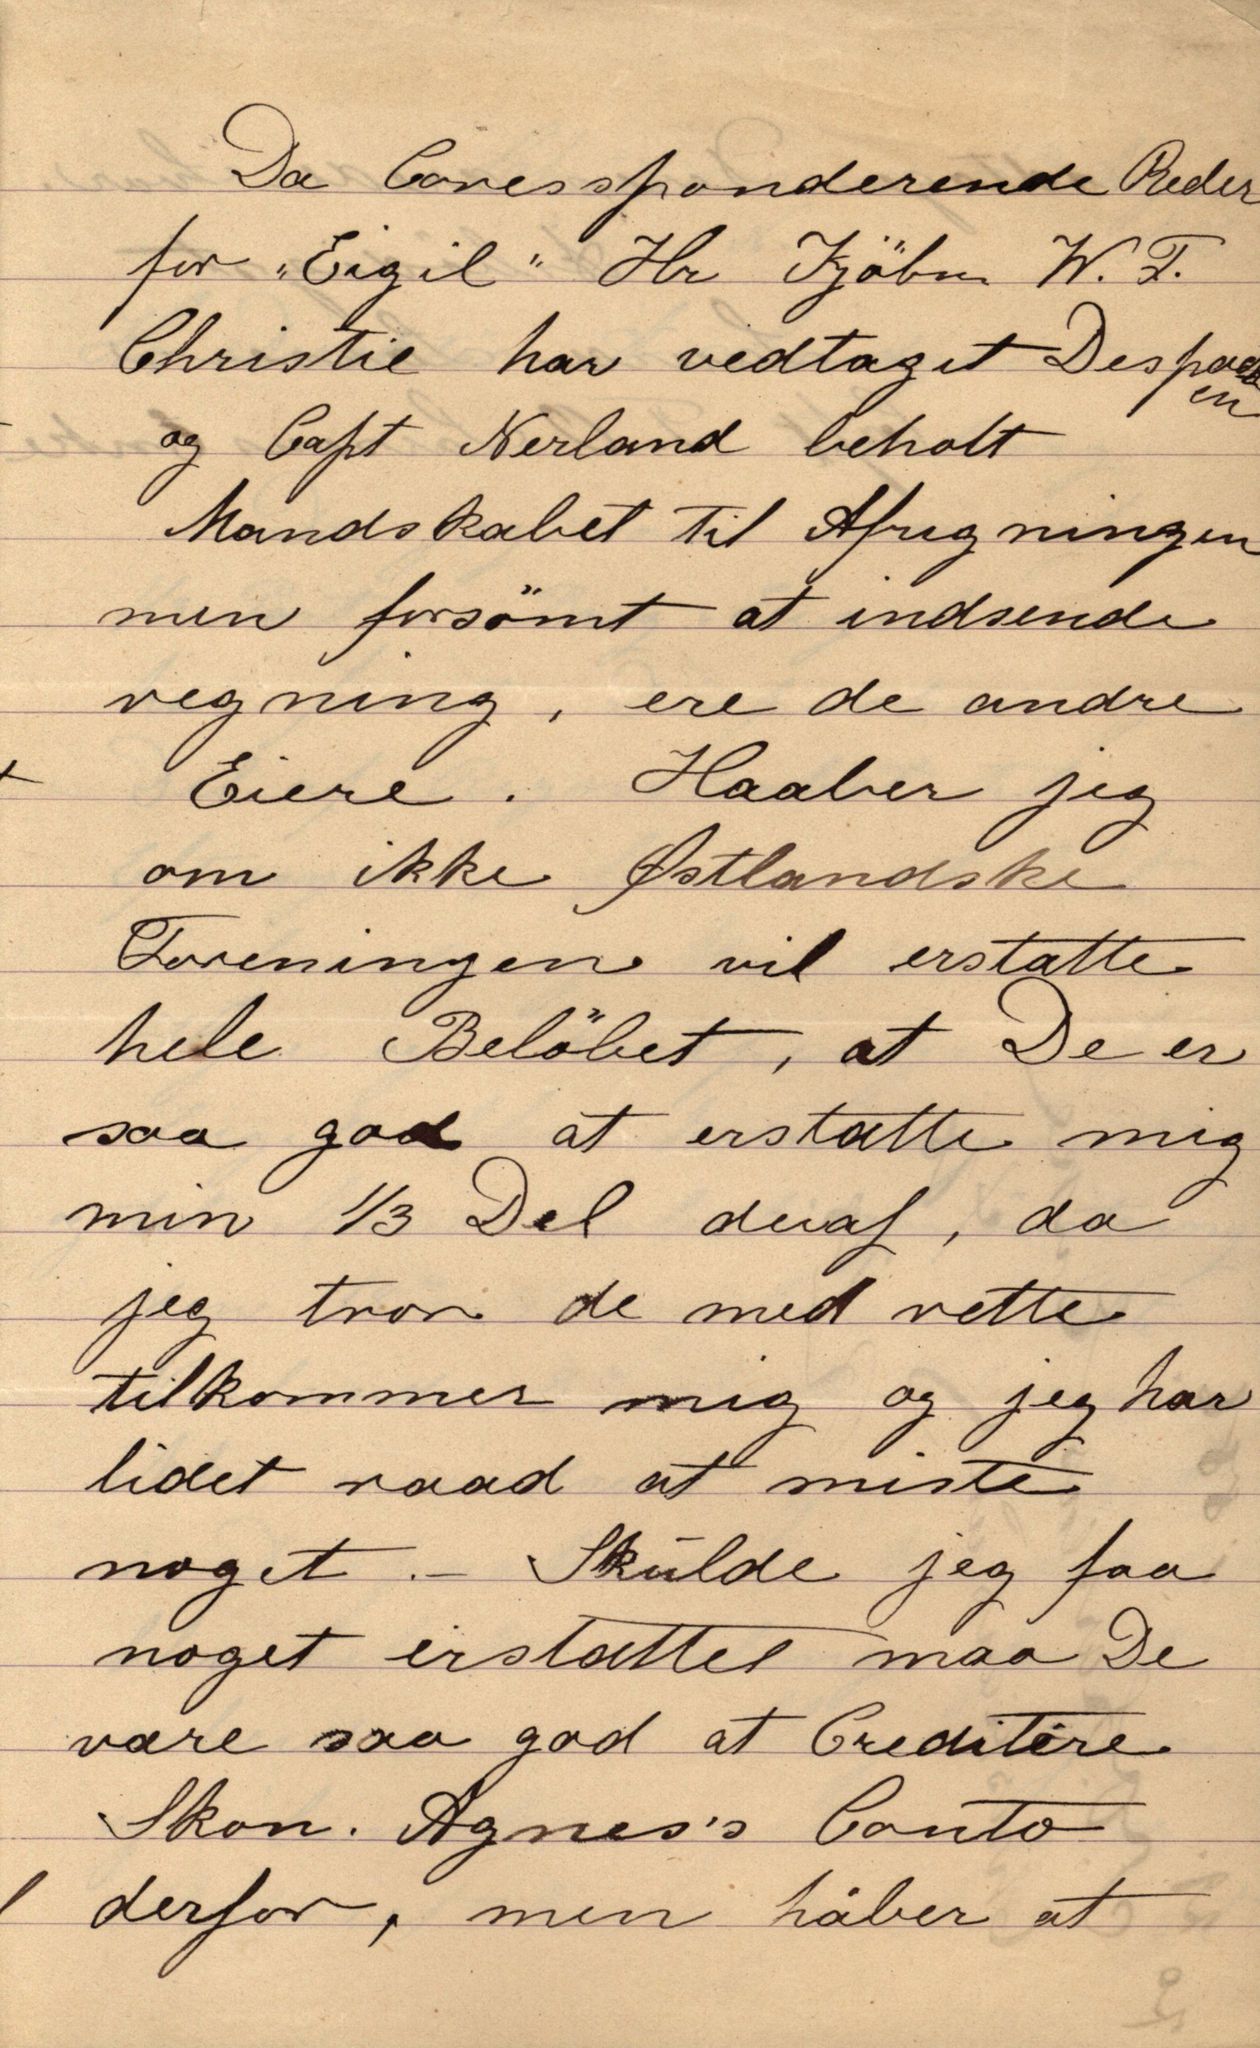 Da Coressponderende Reder
for "Eigil" Hr Kjöbm W. F.
Christie har vedtaget
og Capt Nerland beholt
Mandskabet til Afrigningen
men forsömt at indsende
regning, ere de andre
Eiere. Haaber jeg
om ikke Østlandske
Foreningen vil erstatte
hele Belöbet, at De er
saa god at erstatte mig
min 1/3 Del deraf, da
jeg tror de med rette
tilkommer mig og jeg har
lidet raad at miste
noget. - Skulde jeg faa
noget erstattet maa De
være saa god at Creditere
Skon. Agnes's Conto
derfor, men håber at